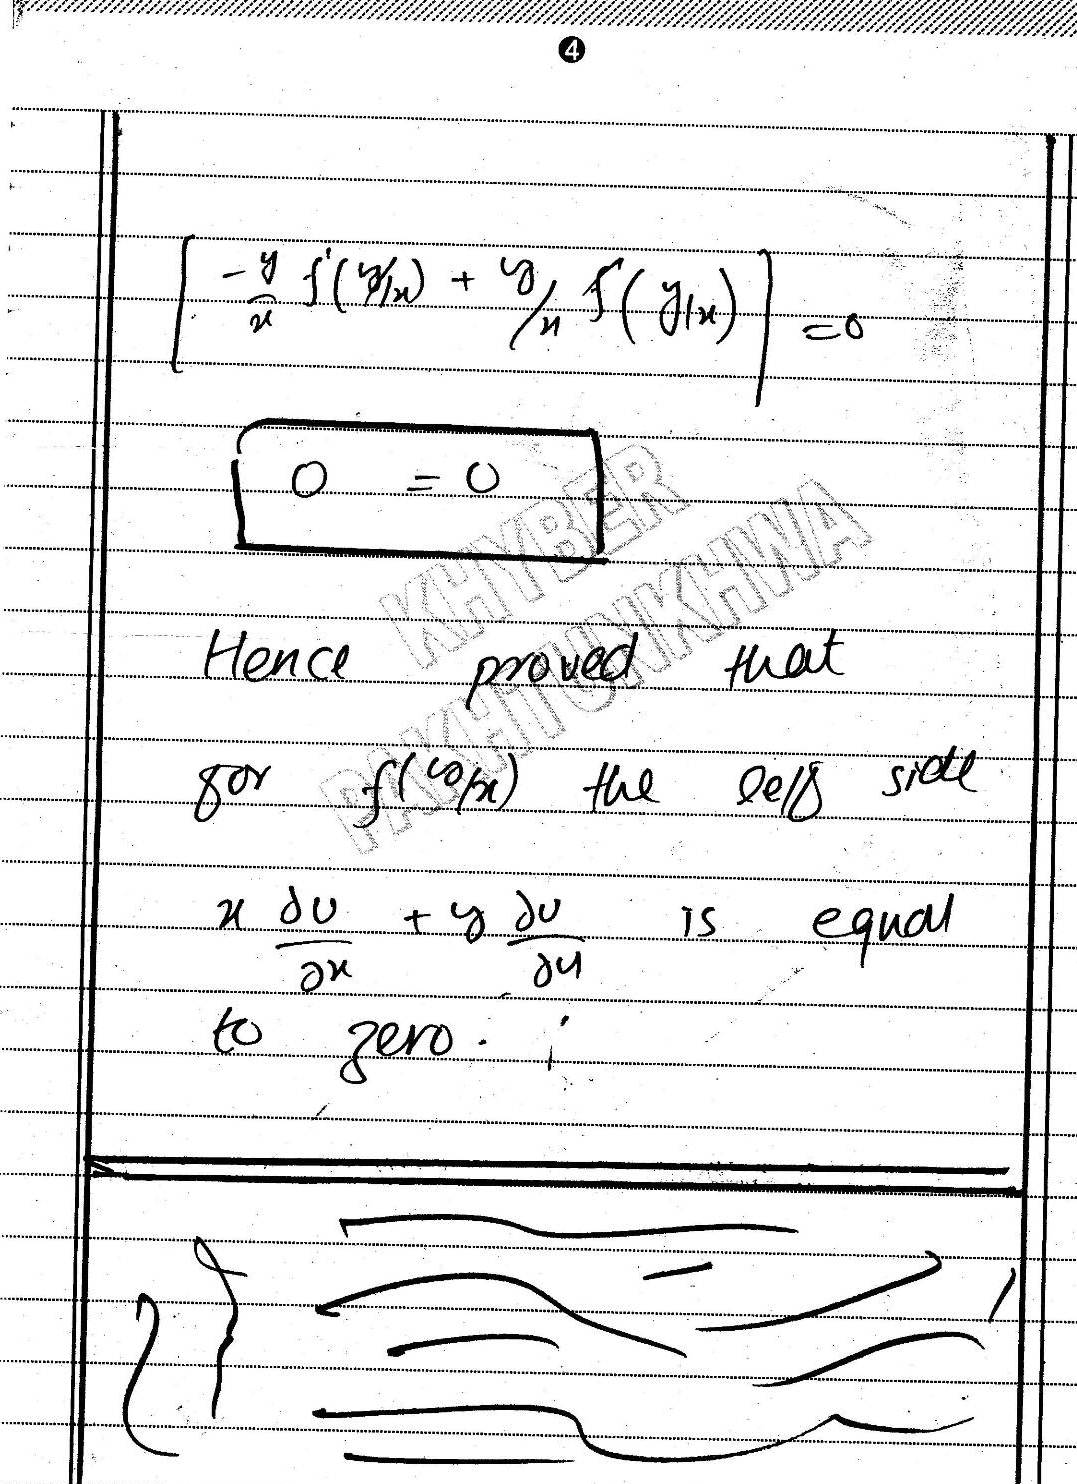 4
[ -y/x f'(y/x) + y/x f'(y/x) ] = 0
0 = 0
KHYBER
PAKHTUNKHWA
Hence proved that
for f(y/x) the left side
x ∂u/∂x + y ∂u/∂y is equal
to zero.